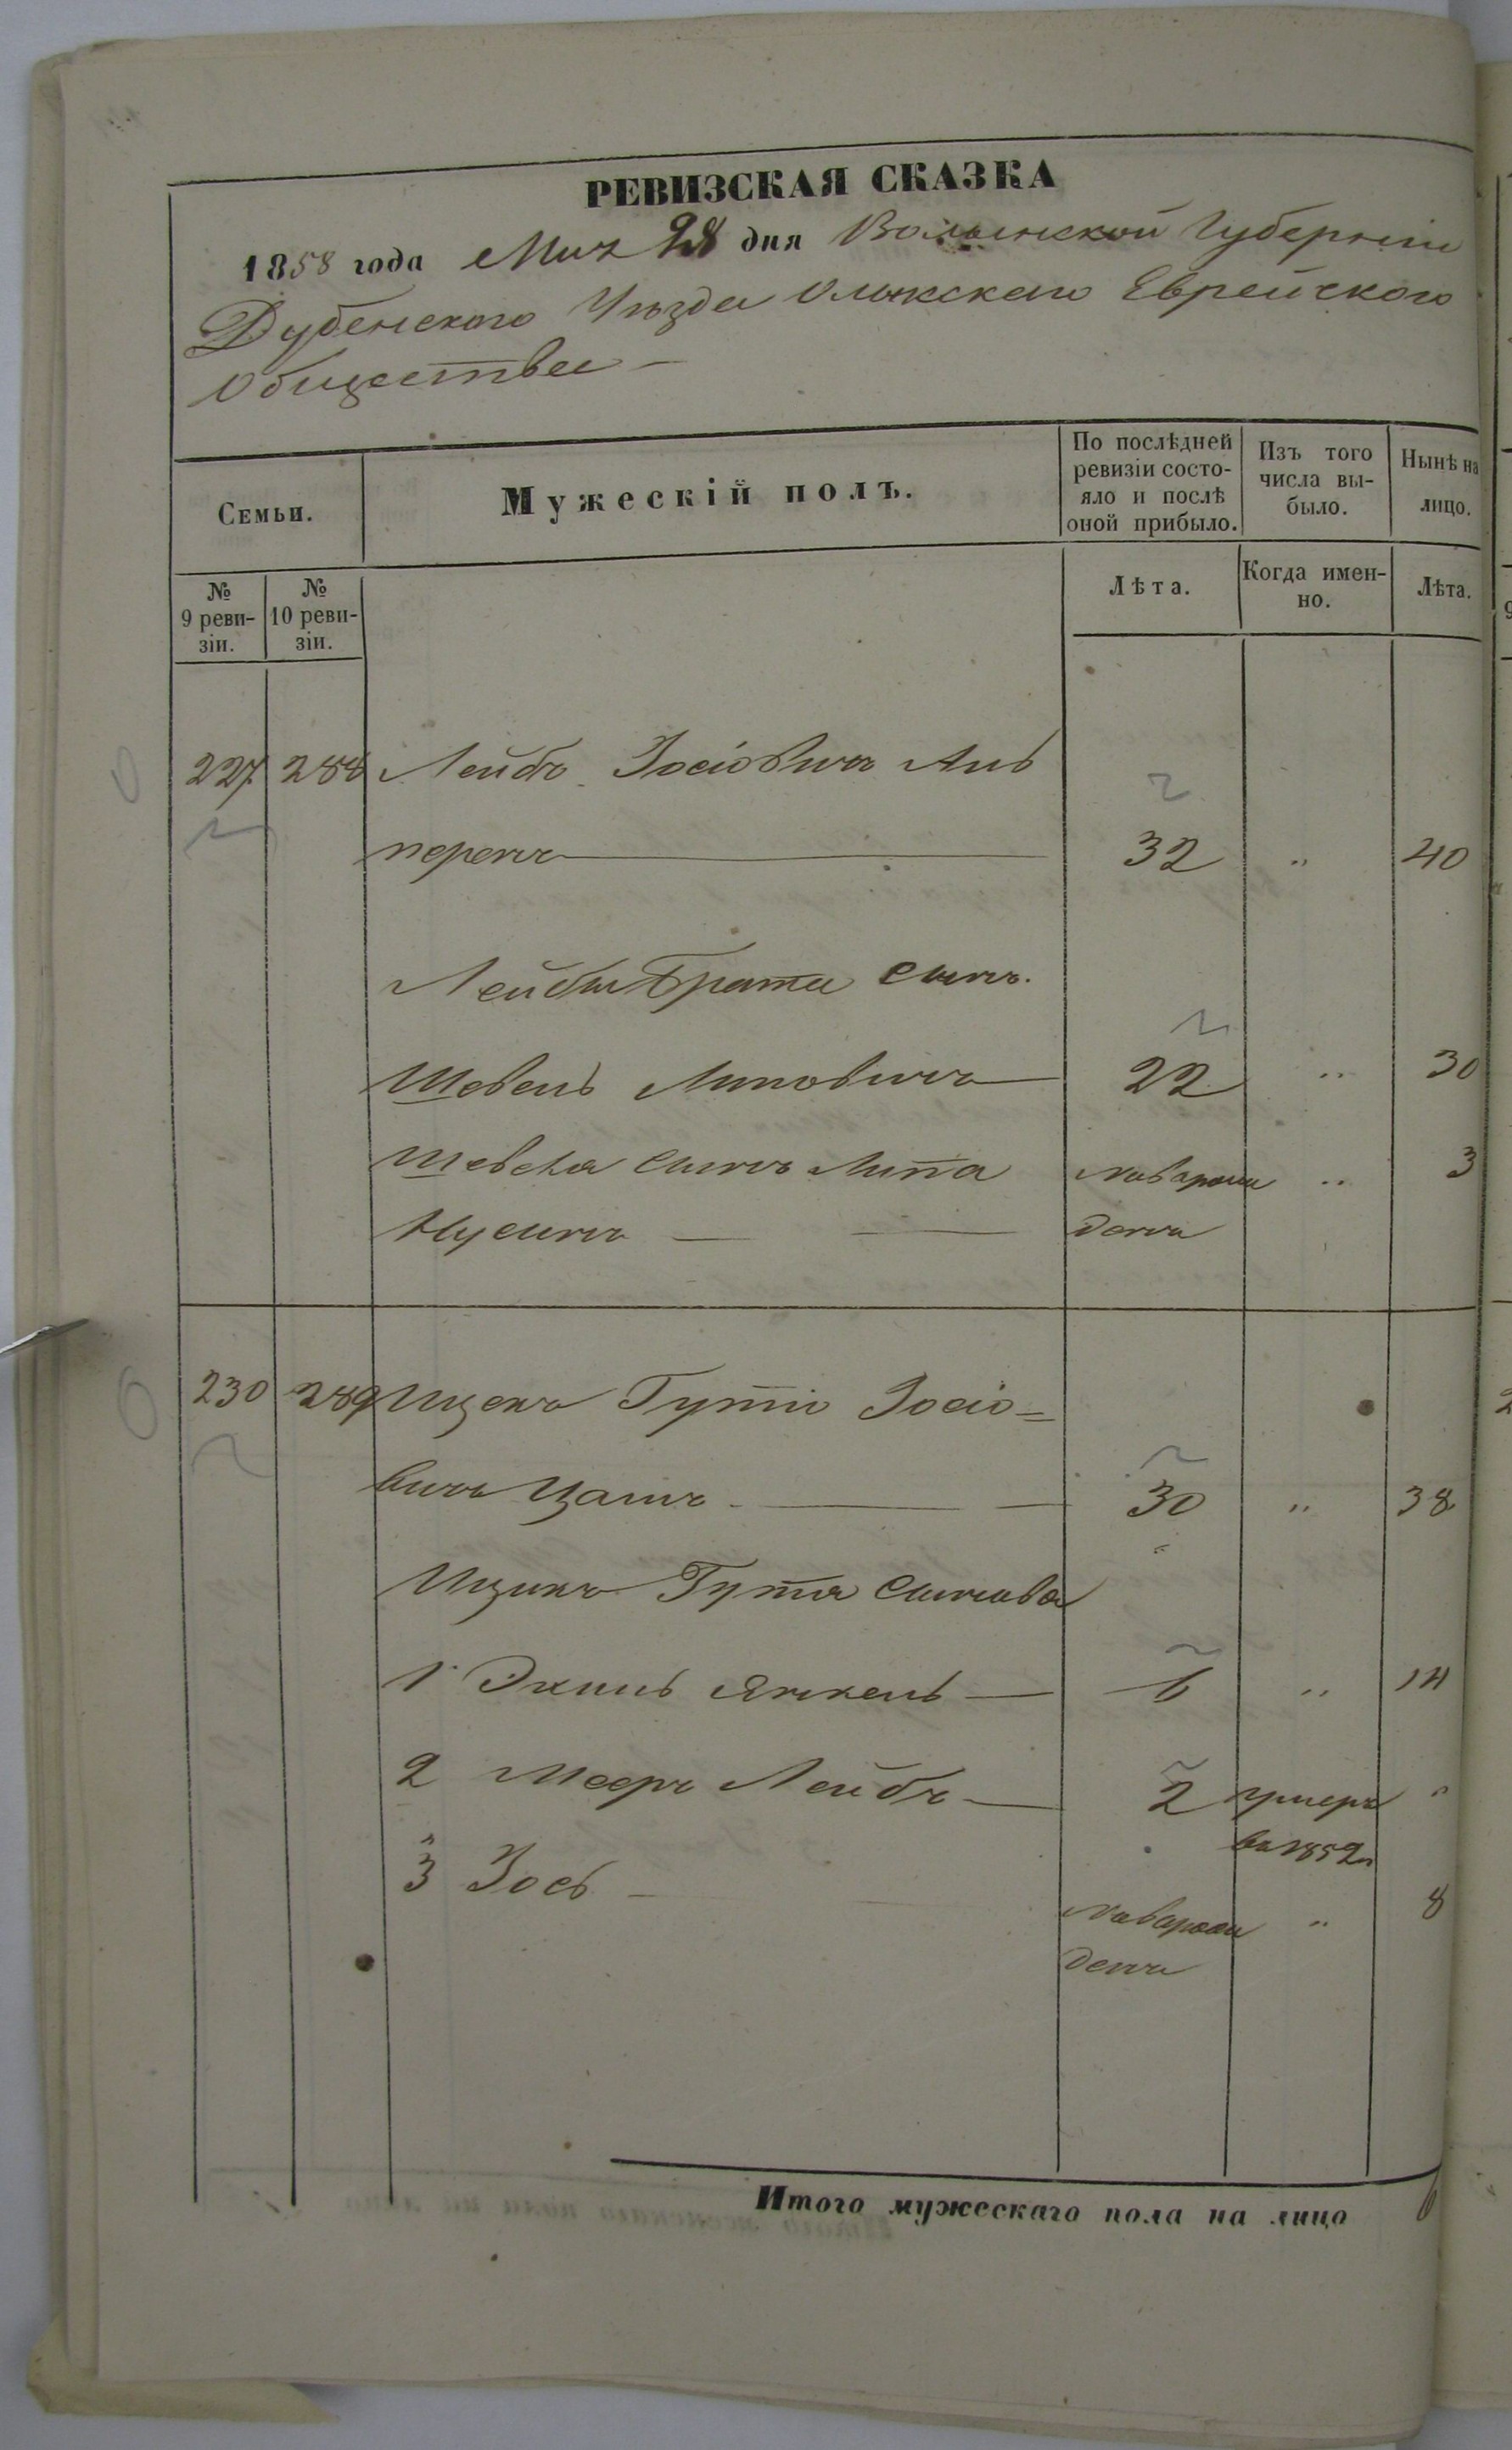 РЕВИЗСКАЯ СКАЗКА
1858 года Мая 28 дня Волынской Губерніи
Дубенского Уѣзда Олыкскаго Еврейского
Общества
Семьи.
Мужескій полъ.
По послѣдней ревизіи состо-
яло и послѣ
оной прибыло.
Изъ того
числа вы-
было.
Нынѣ на
лицо.
№
9 реви-
зіи.
№
10 реви-
зіи.
Лѣта.
Когда имен-
но.
Лѣта.
227 288 Лейба Іосіовичъ
перинъ 32 „ 40
Лейбы Брата сынъ.
Шевель Липовичъ 22 „ 30
Шевеля сынъ Липа новорож „ 3
Нусинъ денъ
230 289 Ицекъ Гутio Іосіо=
вичъ Цамъ 30 „ 38
Ицика Гутя сыновья
1 Эхиль Янкель 6 „ 14
2 Мееръ Лейба 2 умеръ „
въ 1852
3 Іось новорож „ 8
денъ
Итого мужескаго пола на лицо 6